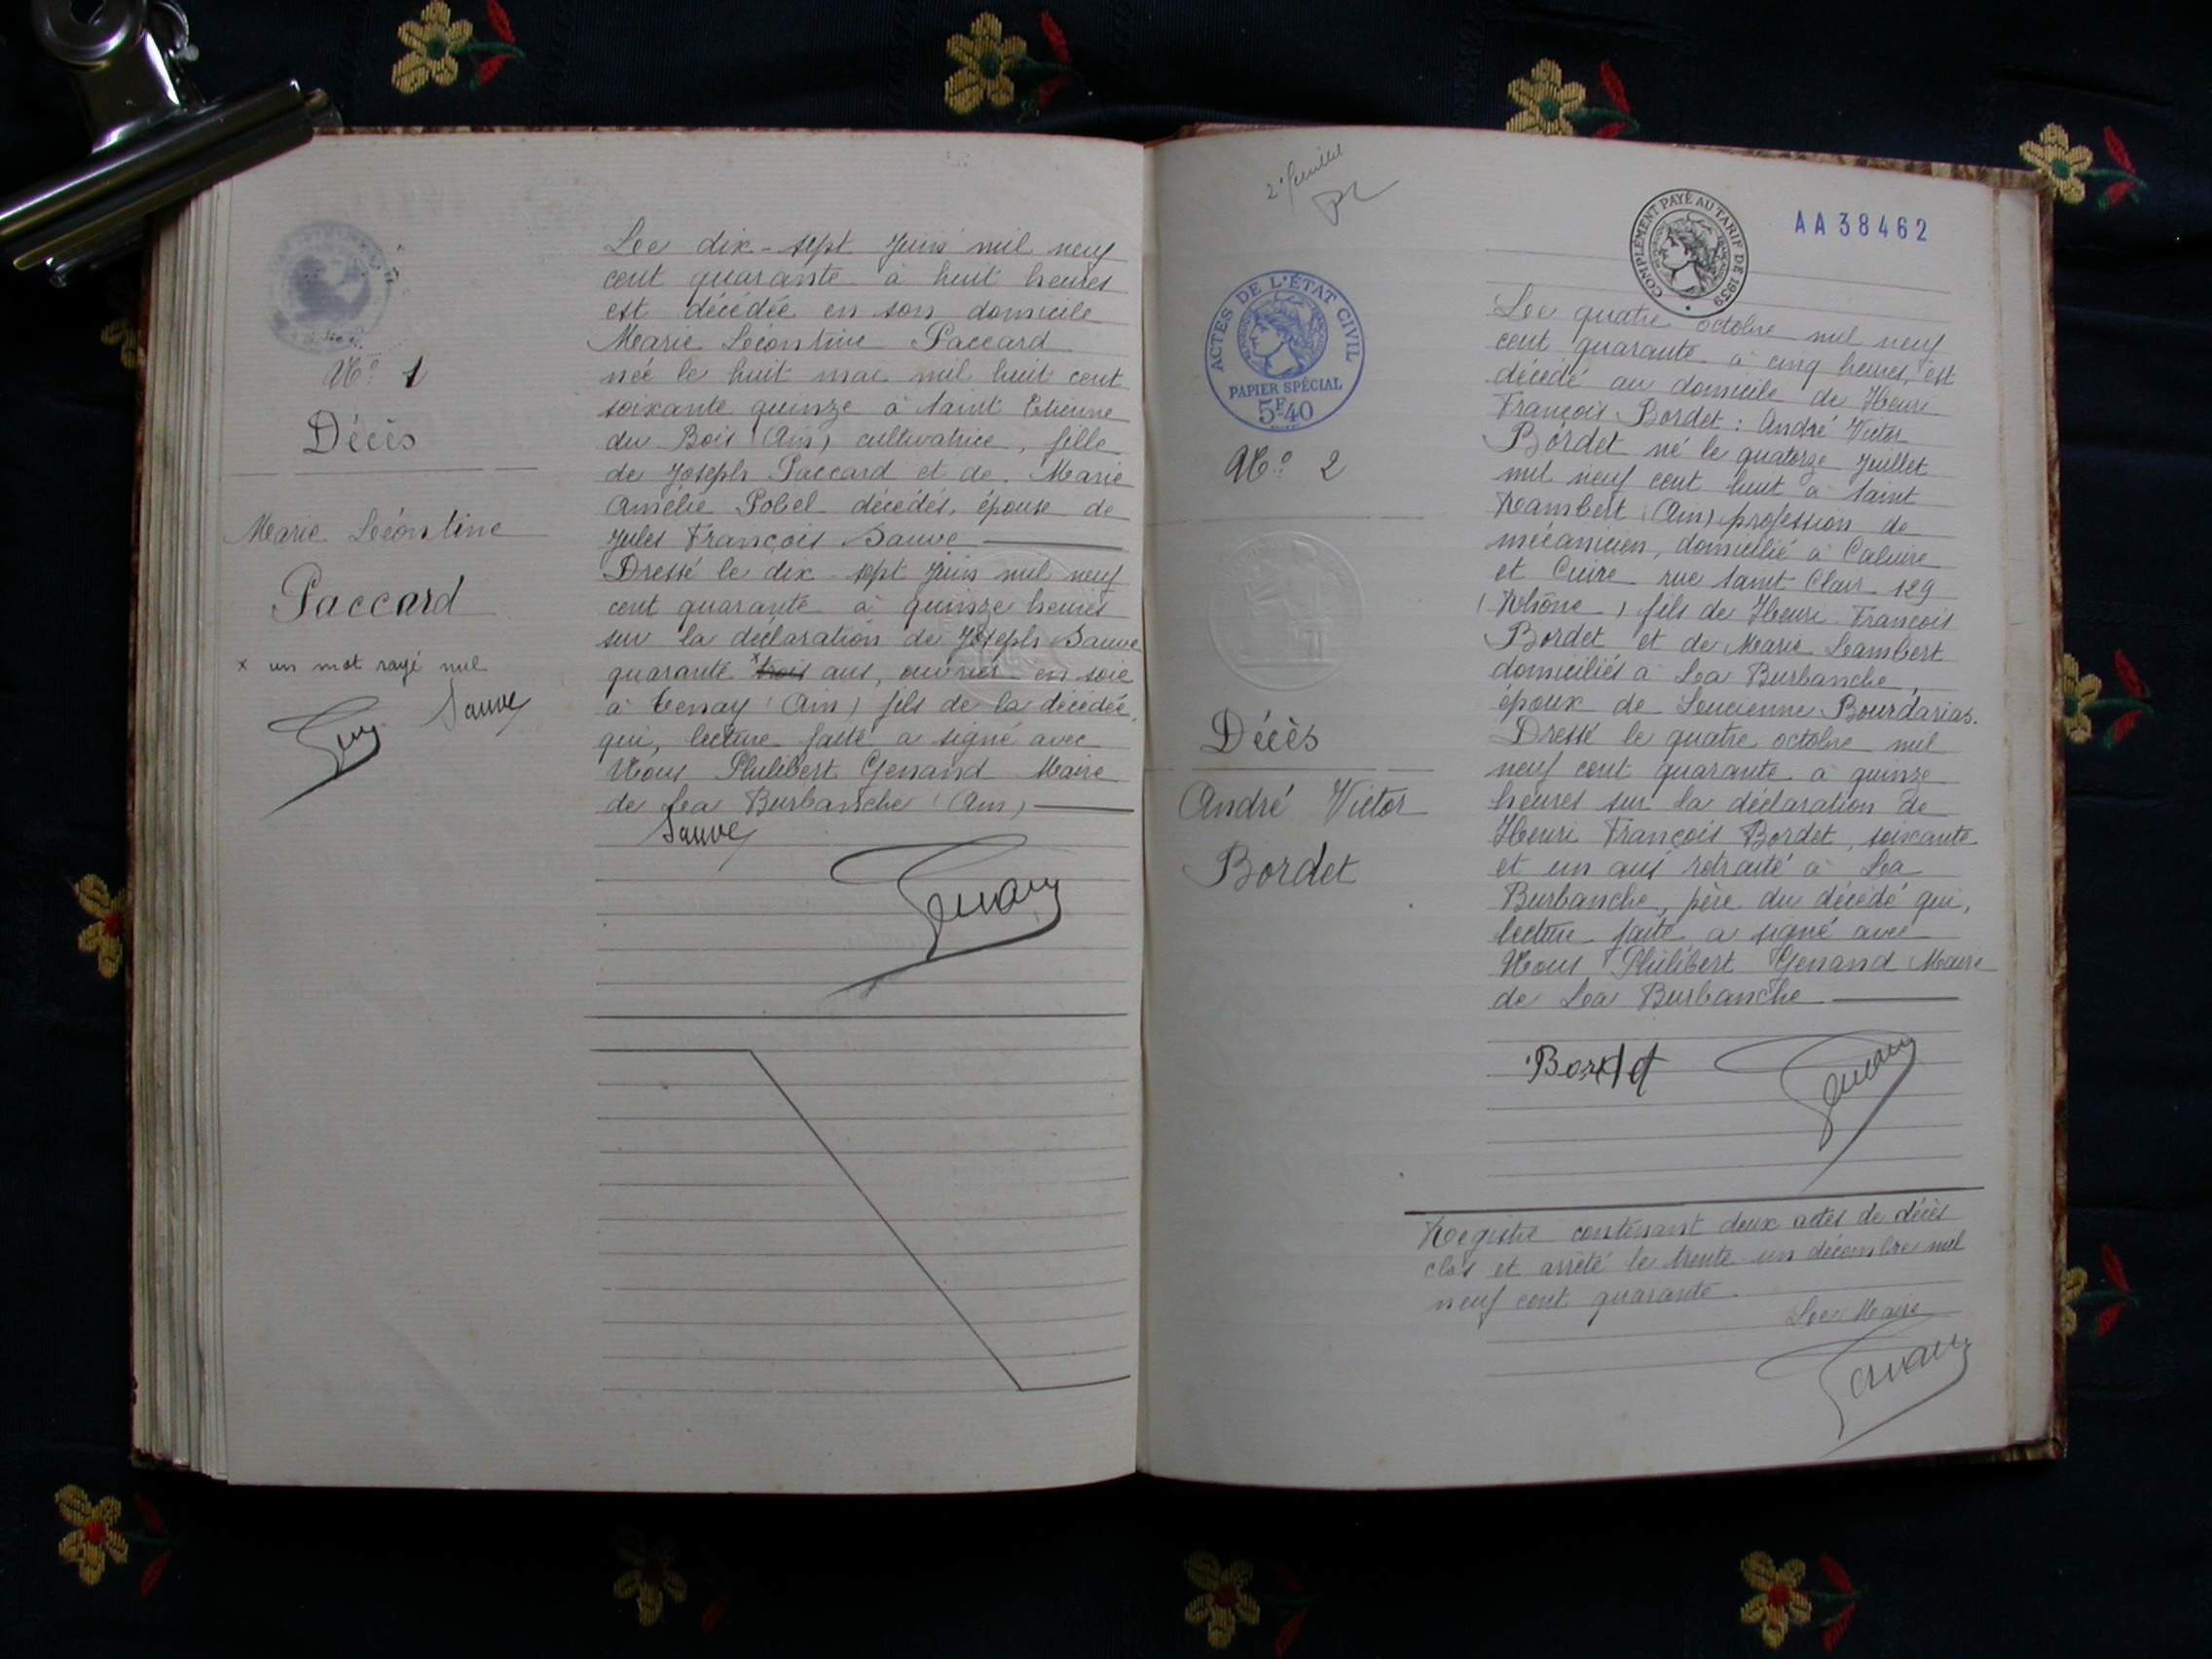 N° 1
Décès
Marie Léontine
Paccard
x un mot rayé nul
Sauve
Le dix-sept Juin mil neuf
cent quarante à huit heures
est décédée en son domicile
Marie Léontine Paccard
née le huit mai mil huit cent
soixante quinze à Saint Etienne
du Bois (Ain) cultivatrice, fille
de Joseph Paccard et de Marie
Amélie Pobel décédés, épouse de
Jules François Sauve
Dressé le dix-sept Juin mil neuf
cent quarante à quinze heures
sur la déclaration de Joseph Sauve
quarante x trois ans, ouvrier en soie
à Tenay (Ain) fils de la décédée,
qui, lecture faite a signé avec
Nous Philibert Genand Maire
de La Burbanche (Ain)
Sauve
Genand
2e feuillet
COMPLÉMENT PAYÉ AU TARIF DE 1939
AA38462
ACTES DE L'ÉTAT CIVIL
PAPIER SPÉCIAL
5F40
N° 2
Décès
André Victor
Bordet
Le quatre octobre mil neuf
cent quarante à cinq heures, est
décédé au domicile de Henri
François Bordet : André Victor
Bordet né le quatorze Juillet
mil neuf cent huit à Saint
Rambert (Ain) profession de
mécanicien, domicilié à Caluire
et Cuire rue Saint Clair 129
(Rhône) fils de Henri François
Bordet et de Marie Lambert
domiciliés à La Burbanche,
époux de Lucienne Bourdarias.
Dressé le quatre octobre mil
neuf cent quarante à quinze
heures sur la déclaration de
Henri François Bordet, soixante
et un ans retraité à La
Burbanche, père du décédé qui,
lecture faite a signé avec
Nous Philibert Genand Maire
de La Burbanche
Bordet
Genand
Registre contenant deux actes de décès
clos et arrêté le trente-un décembre mil
neuf cent quarante.
Le Maire
Genand